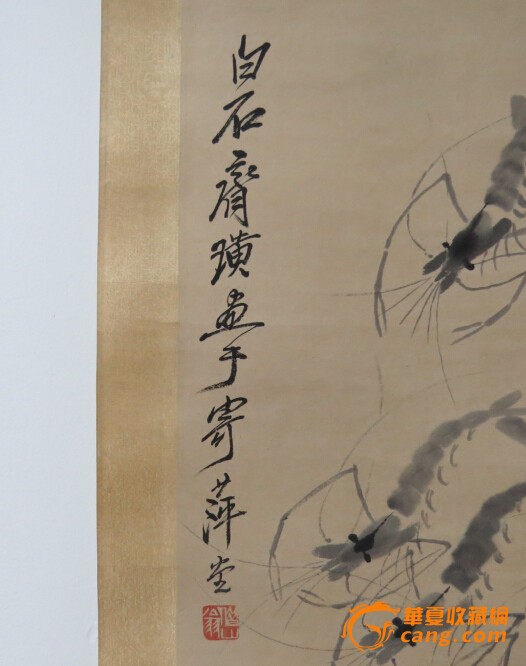 白石齊璜畫于寄萍堂
借山翁
華夏收藏網
cang.com